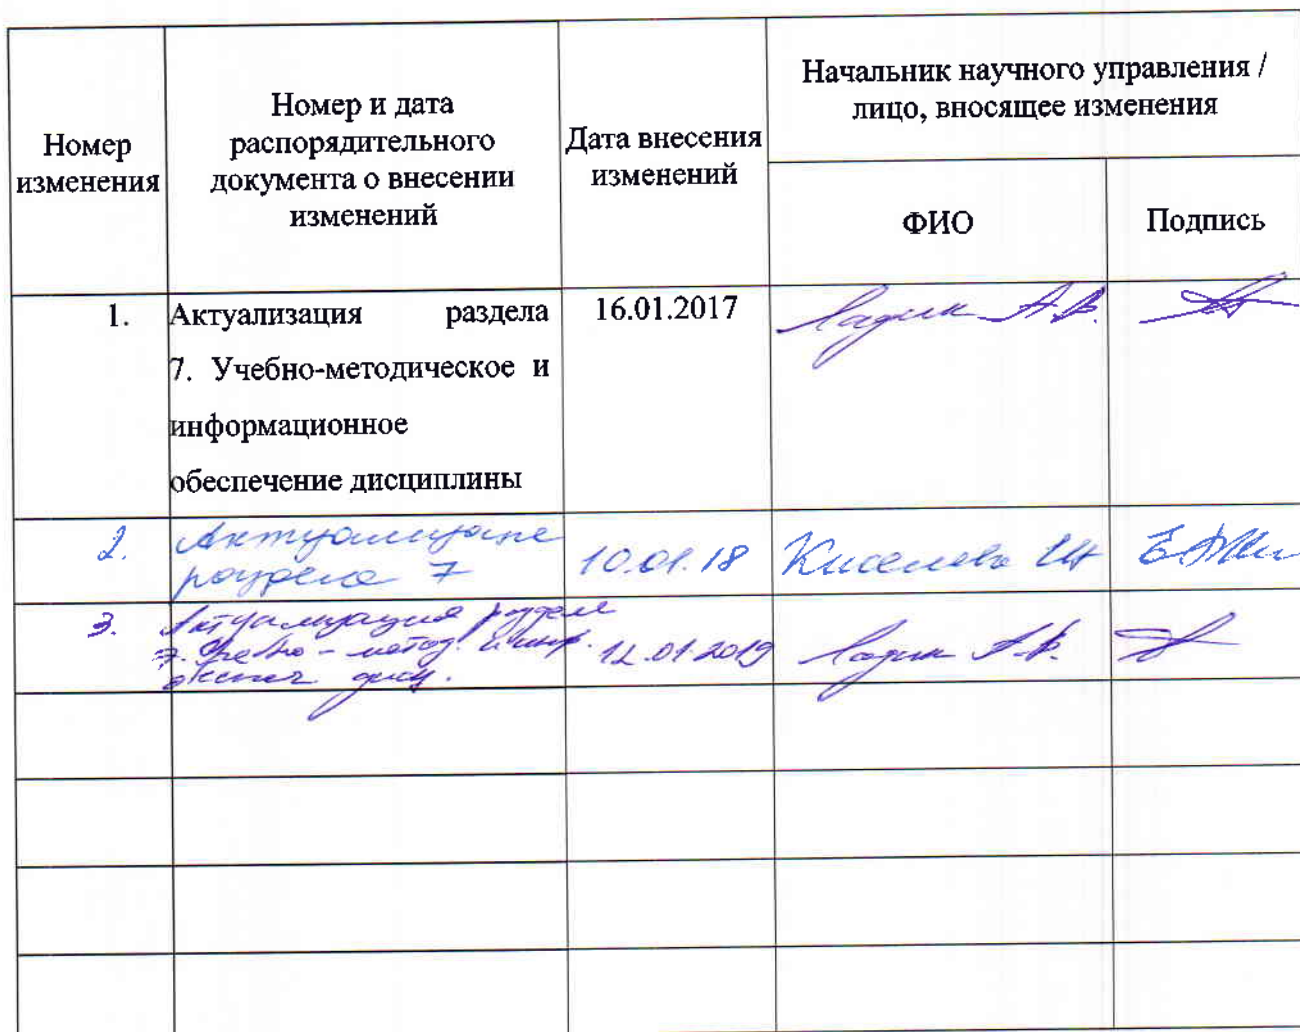 Номер изменения
Номер и дата
распорядительного
документа о внесении
изменений
Дата внесения
изменений
Начальник научного управления /
лицо, вносящее изменения
ФИО
Подпись
1.
Актуализация раздела
7. Учебно-методическое и
информационное
обеспечение дисциплины
16.01.2017
Ладик А.В.
2.
Актуализация
раздела 7
10.01.18
Киселева
3.
Актуализация раздела
7. Учебно-метод. и инф.
обеспеч дисц.
12.01.2019
Ладик А.В.